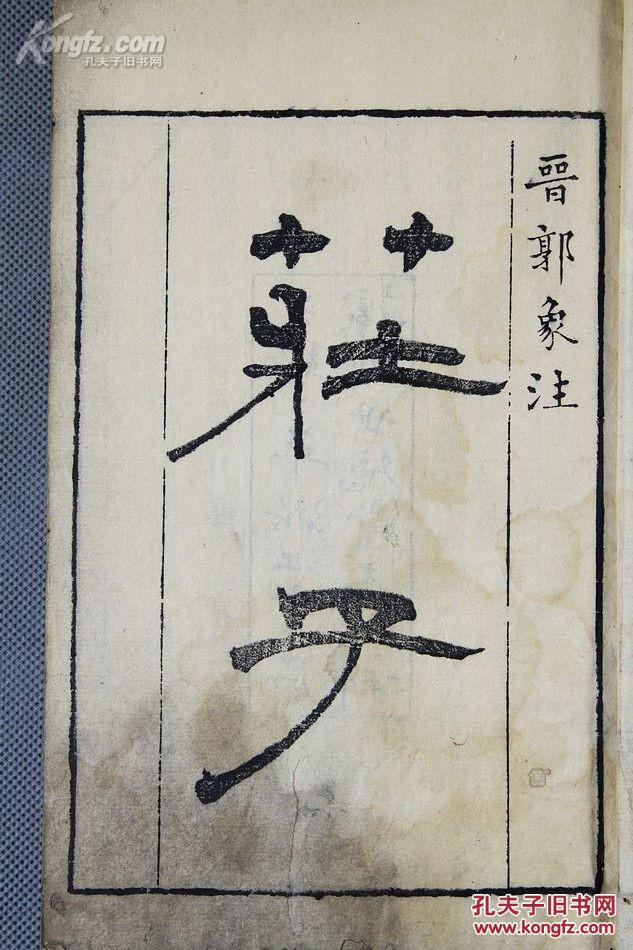 Kongfz.com
孔夫子旧书网
晋郭象注
莊子
孔夫子旧书网
www.kongfz.com